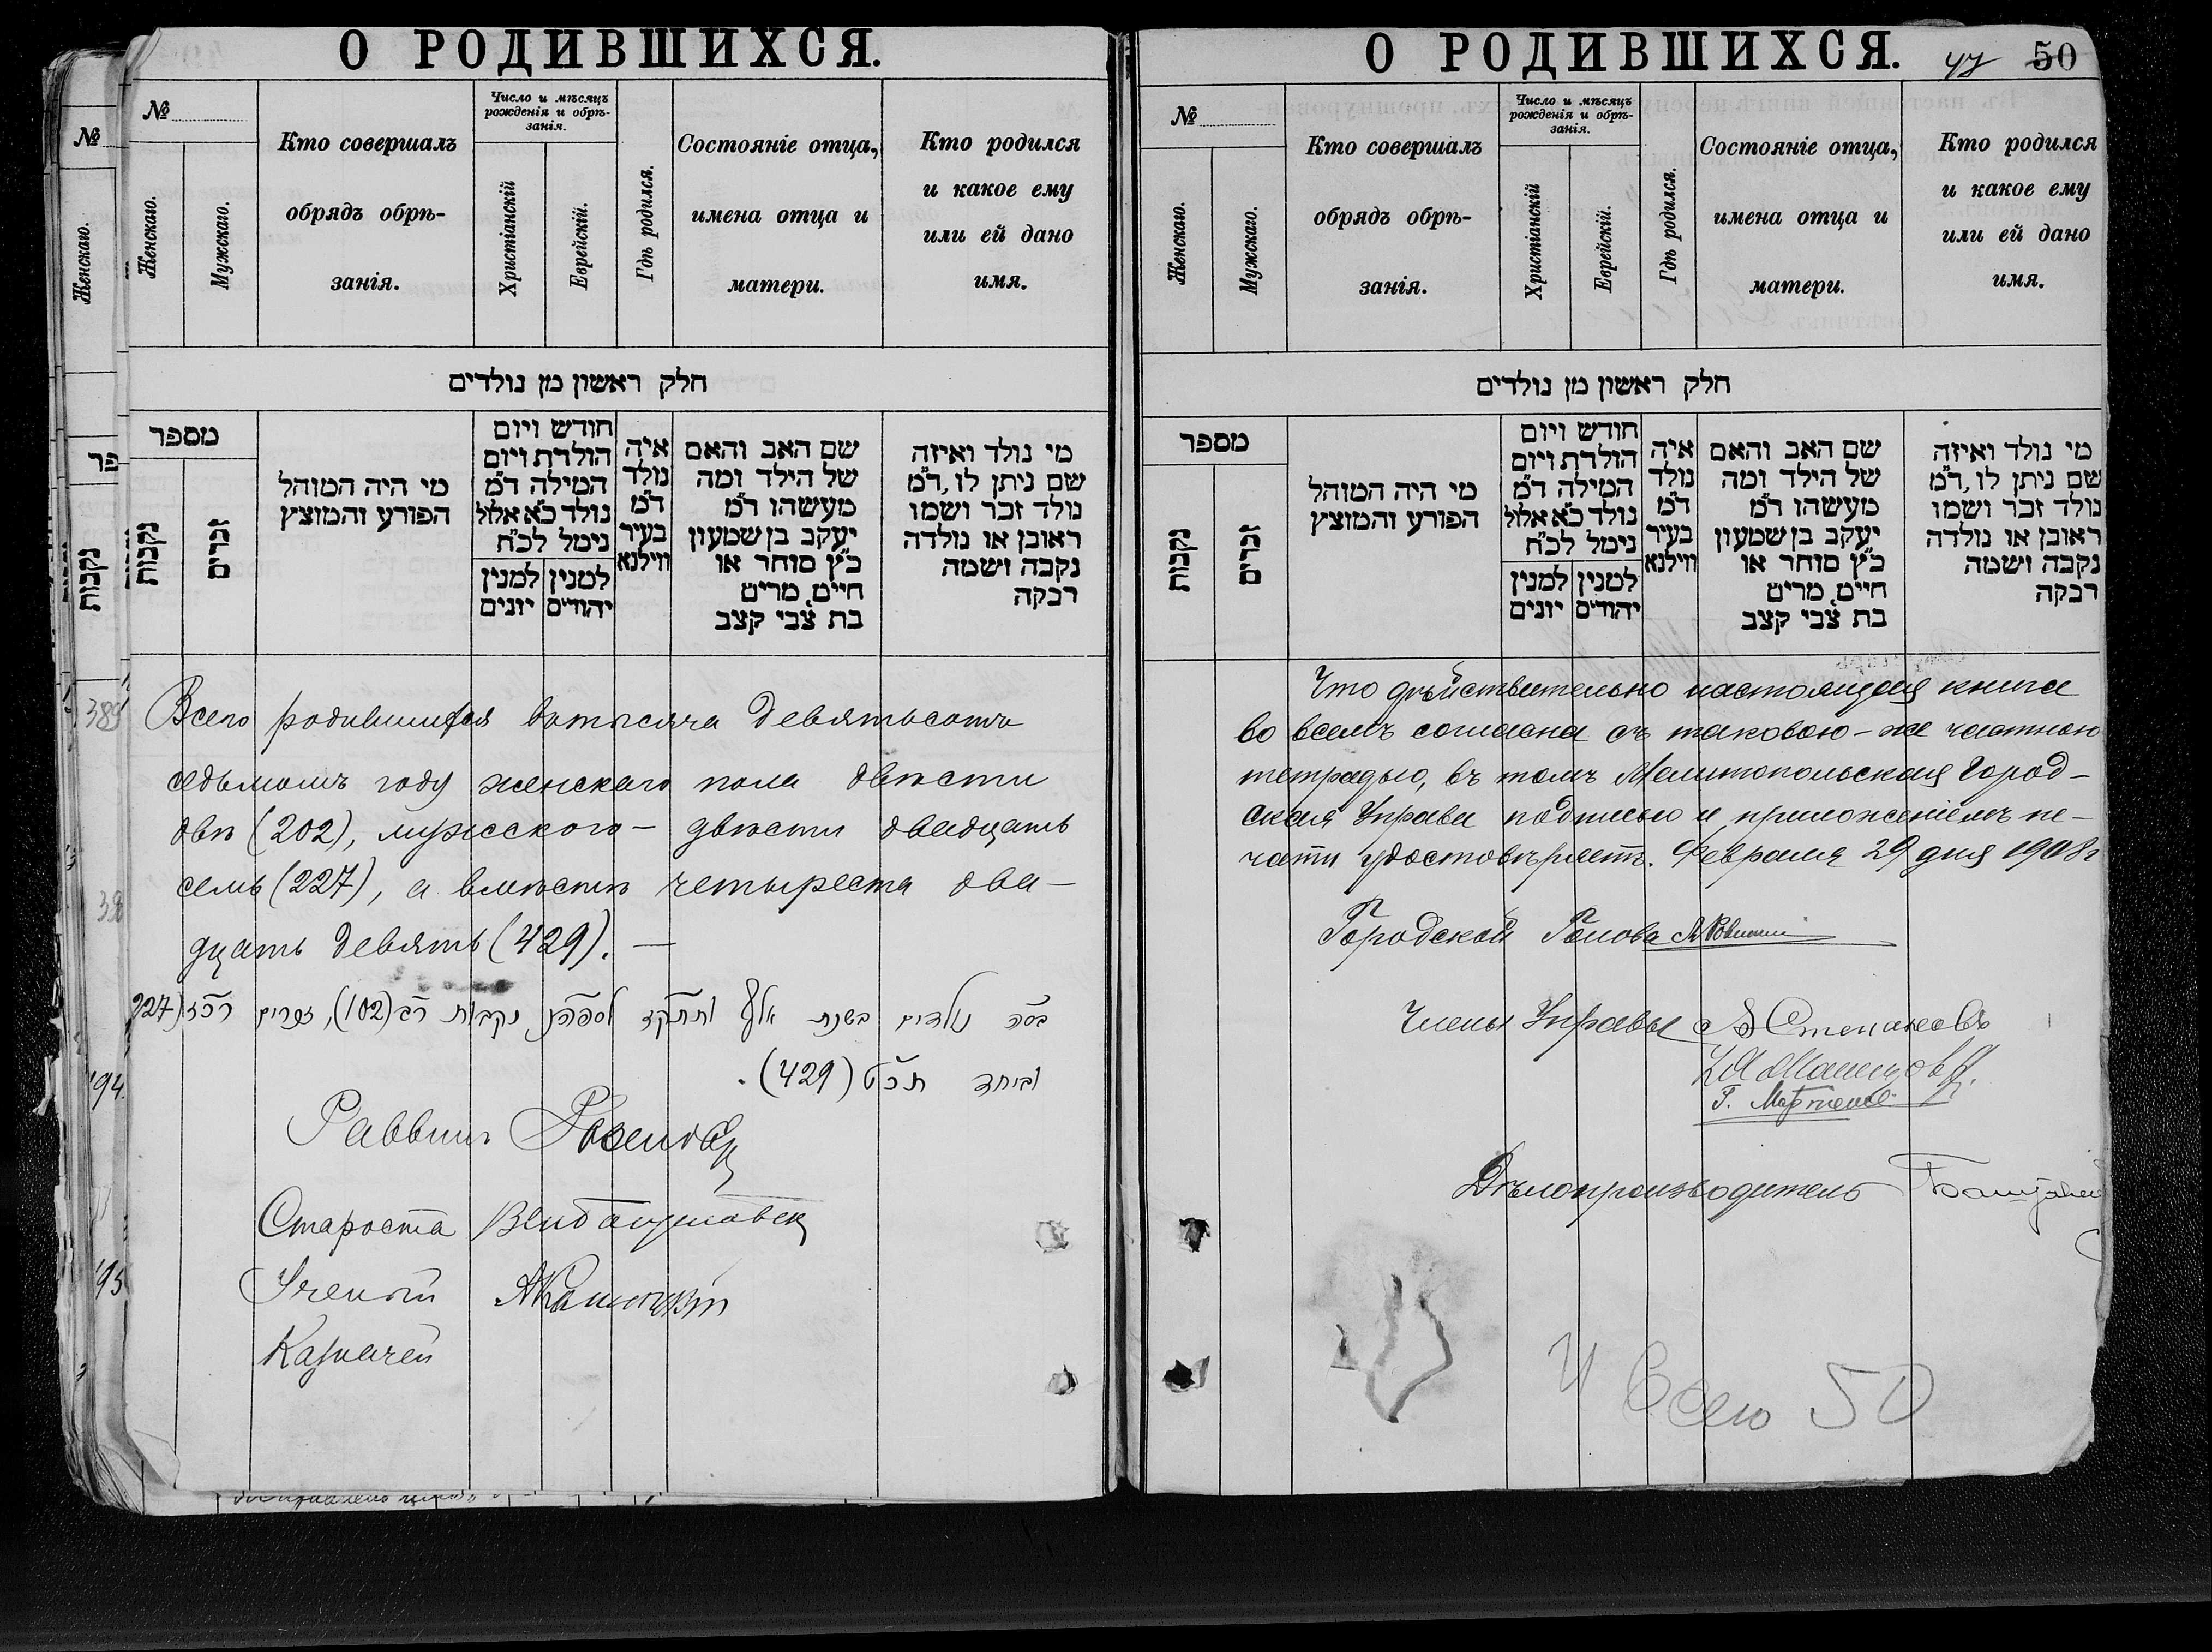 О РОДИВШИХСЯ.
№
Женскаго.
פר
נקבות
389
38
'94.
'95
№
Женскаго.
Мужскаго.
Кто совершалъ
обрядъ обрѣ-
занія.
Число и мѣсяцъ
рожденія и обрѣ-
занія.
Христіанскій
Еврейскій.
Гдѣ родился.
Состояніе отца,
имена отца и
матери.
Кто родился
и какое ему
или ей дано
имя.
חלק ראשון מן נולדים
מספר
נקבות
זכרים
מי היה המוהל
הפורע והמוצץ
חודש ויום
הולדת ויום
המילה ד״מ
נולד כ״א אלול
נימל לכ״ח
למנין יהודים
למנין יונים
איה
נולד
ד״מ
בעיר
ווילנא
שם האב והאם
של הילד ומה
מעשהו ד״מ
יעקב בן שמעון
כ״ץ סוחר או
חיים, מרים
בת צבי קצב
מי נולד ואיזה
שם ניתן לו, ד״מ
נולד זכר ושמו
ראובן או נולדה
נקבה ושמה
רבקה
Всего родившихся въ тысяча девятьсотъ
седьмомъ году женскаго пола двѣсти
двѣ (202), мужского – двѣсти двадцать
семь (227), а вмѣстѣ четыреста два-
дцать девять (429). —
נולדים בשנת אלף נקבות ר״ב (102), זכרים רכ״ז (227
וביחד תכ״ט (429).
Раввинъ
Староста
Ученый
Казначей
О РОДИВШИХСЯ.
47 50
№
Женскаго.
Мужскаго.
Кто совершалъ
обрядъ обрѣ-
занія.
Число и мѣсяцъ
рожденія и обрѣ-
занія.
Христіанскій
Еврейскій.
Гдѣ родился.
Состояніе отца,
имена отца и
матери.
Кто родился
и какое ему
или ей дано
имя.
חלק ראשון מן נולדים
מספר
נקבות
זכרים
מי היה המוהל
הפורע והמוצץ
חודש ויום
הולדת ויום
המילה ד״מ
נולד כ״א אלול
נימל לכ״ח
למנין יהודים
למנין יונים
איה
נולד
ד״מ
בעיר
ווילנא
שם האב והאם
של הילד ומה
מעשהו ד״מ
יעקב בן שמעון
כ״ץ סוחר או
חיים, מרים
בת צבי קצב
מי נולד ואיזה
שם ניתן לו, ד״מ
נולד זכר ושמו
ראובן או נולדה
נקבה ושמה
רבקה
Что дѣйствительно настоящая книга
во всемъ согласна съ таковою-же частною
тетрадью, въ томъ Мелитопольская Город-
ская Управа подписью и приложеніемъ пе-
чати удостовѣряетъ. Февраля 29 дня 1908 г
Городской Голова
Члены Управы Степановъ
Г.
Дѣлопроизводитель
И Всего 50